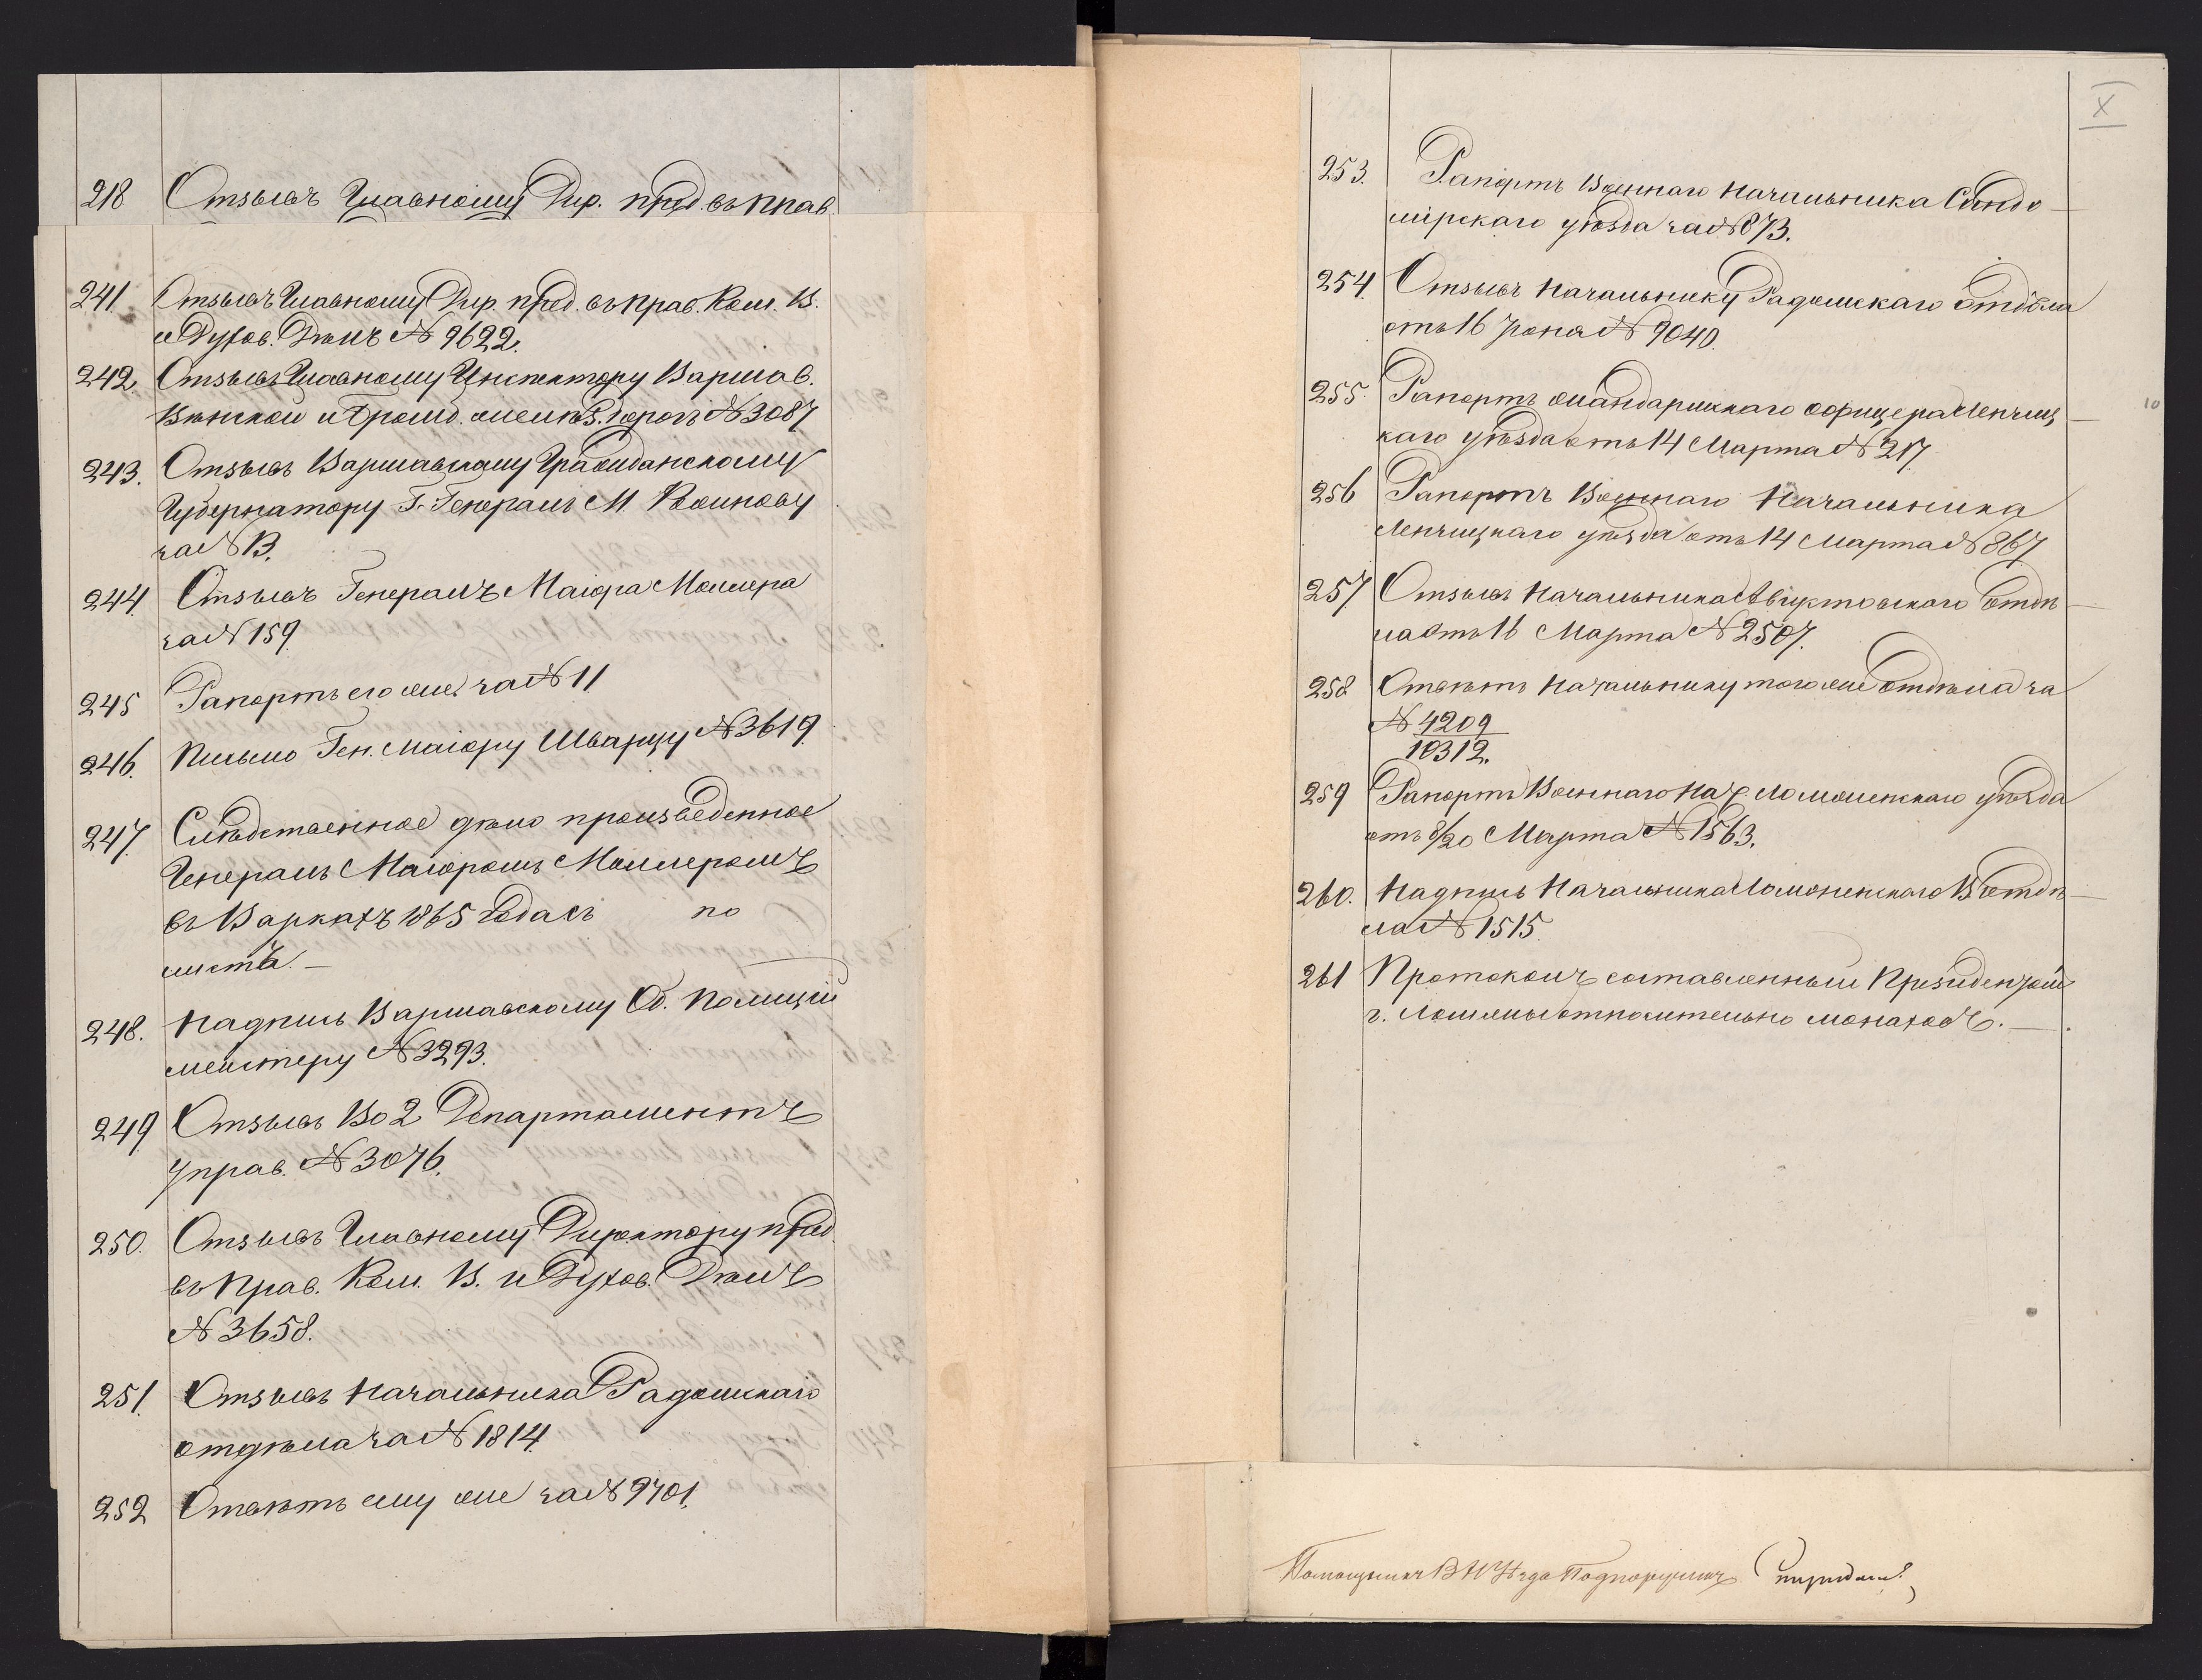 218 Отзывъ Главному Дир. пред. въ Прав.
241. Отзывъ Главному Дир. пред. въ Прав. Ком. В.
и Духов. Дѣлъ № 9622.
242. Отзывъ Главному Инспектору Варшав.
Вѣнской и Бромб. желѣз. дорогъ № 3087
243. Отзывъ Варшавскому Гражданскому
Губернатору Г. Генералъ М. Рожнову
за № 13.
244. Отзывъ Генералъ Маіора Моллера
за № 159.
245 Рапортъ его же за № 11
246. Письмо Ген. Маіору Шварцу № 3619.
247. Слѣдственное дѣло произведенное
Генералъ Маіоромъ Моллеромъ
въ Варкахъ 1865 года съ по
листъ. —
248. Надпись Варшавскому Об. Полицій
мейстеру № 3293.
249. Отзывъ Во 2 Департаментъ
Управ. № 3076.
250. Отзывъ Главному Директору пред.
въ Прав. Ком. В. и Духов. Дѣлъ
№ 3658.
251. Отзывъ Начальника Радомскаго
отдѣла за № 1814.
252 Отвѣтъ ему же за № 9701.
X
253. Рапортъ Военнаго Начальника Сандо
мірскаго уѣзда за № 873.
254. Отзывъ Начальнику Радомскаго Отдѣла
отъ 16 Іюня № 9040.
255. Рапортъ жандармскаго офицера Ленчиц
каго уѣзда отъ 14 Марта № 217.
10
256 Рапортъ Военнаго Начальника
Ленчицкаго уѣзда отъ 14 Марта № 867.
257 Отзывъ Начальника Августовскаго Отдѣ
ла отъ 16 Марта № 2507.
258 Отвѣтъ Начальнику того же Отдѣла за
№ 4209
10312.
259 Рапортъ Военнаго Нач. Ломженскаго уѣзда
отъ 8/20 Марта № 1563.
260. Надпись Начальника Ломженскаго В. Отдѣ
ла № 1515.
261 Протоколъ составленный Президентомъ
г. Ломжи относительно монаховъ. —
Помощникъ В Н Уѣзда Подпоручикъ